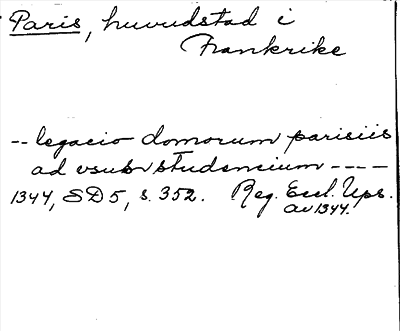 Paris, huvudstad i
Frankrike
-- legacio domorum parisiis
ad vsus studencium ----
1344, SD 5, s. 352. Reg. Eccl. Ups.
av 1344.